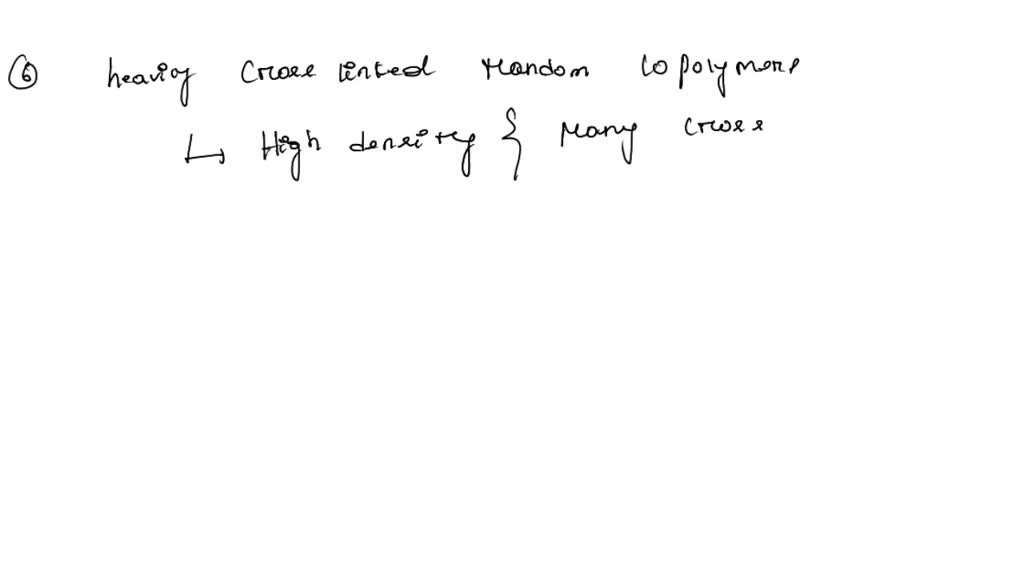 ⑥ heaviy cross linked random copolymers
↳ High density } Many cross